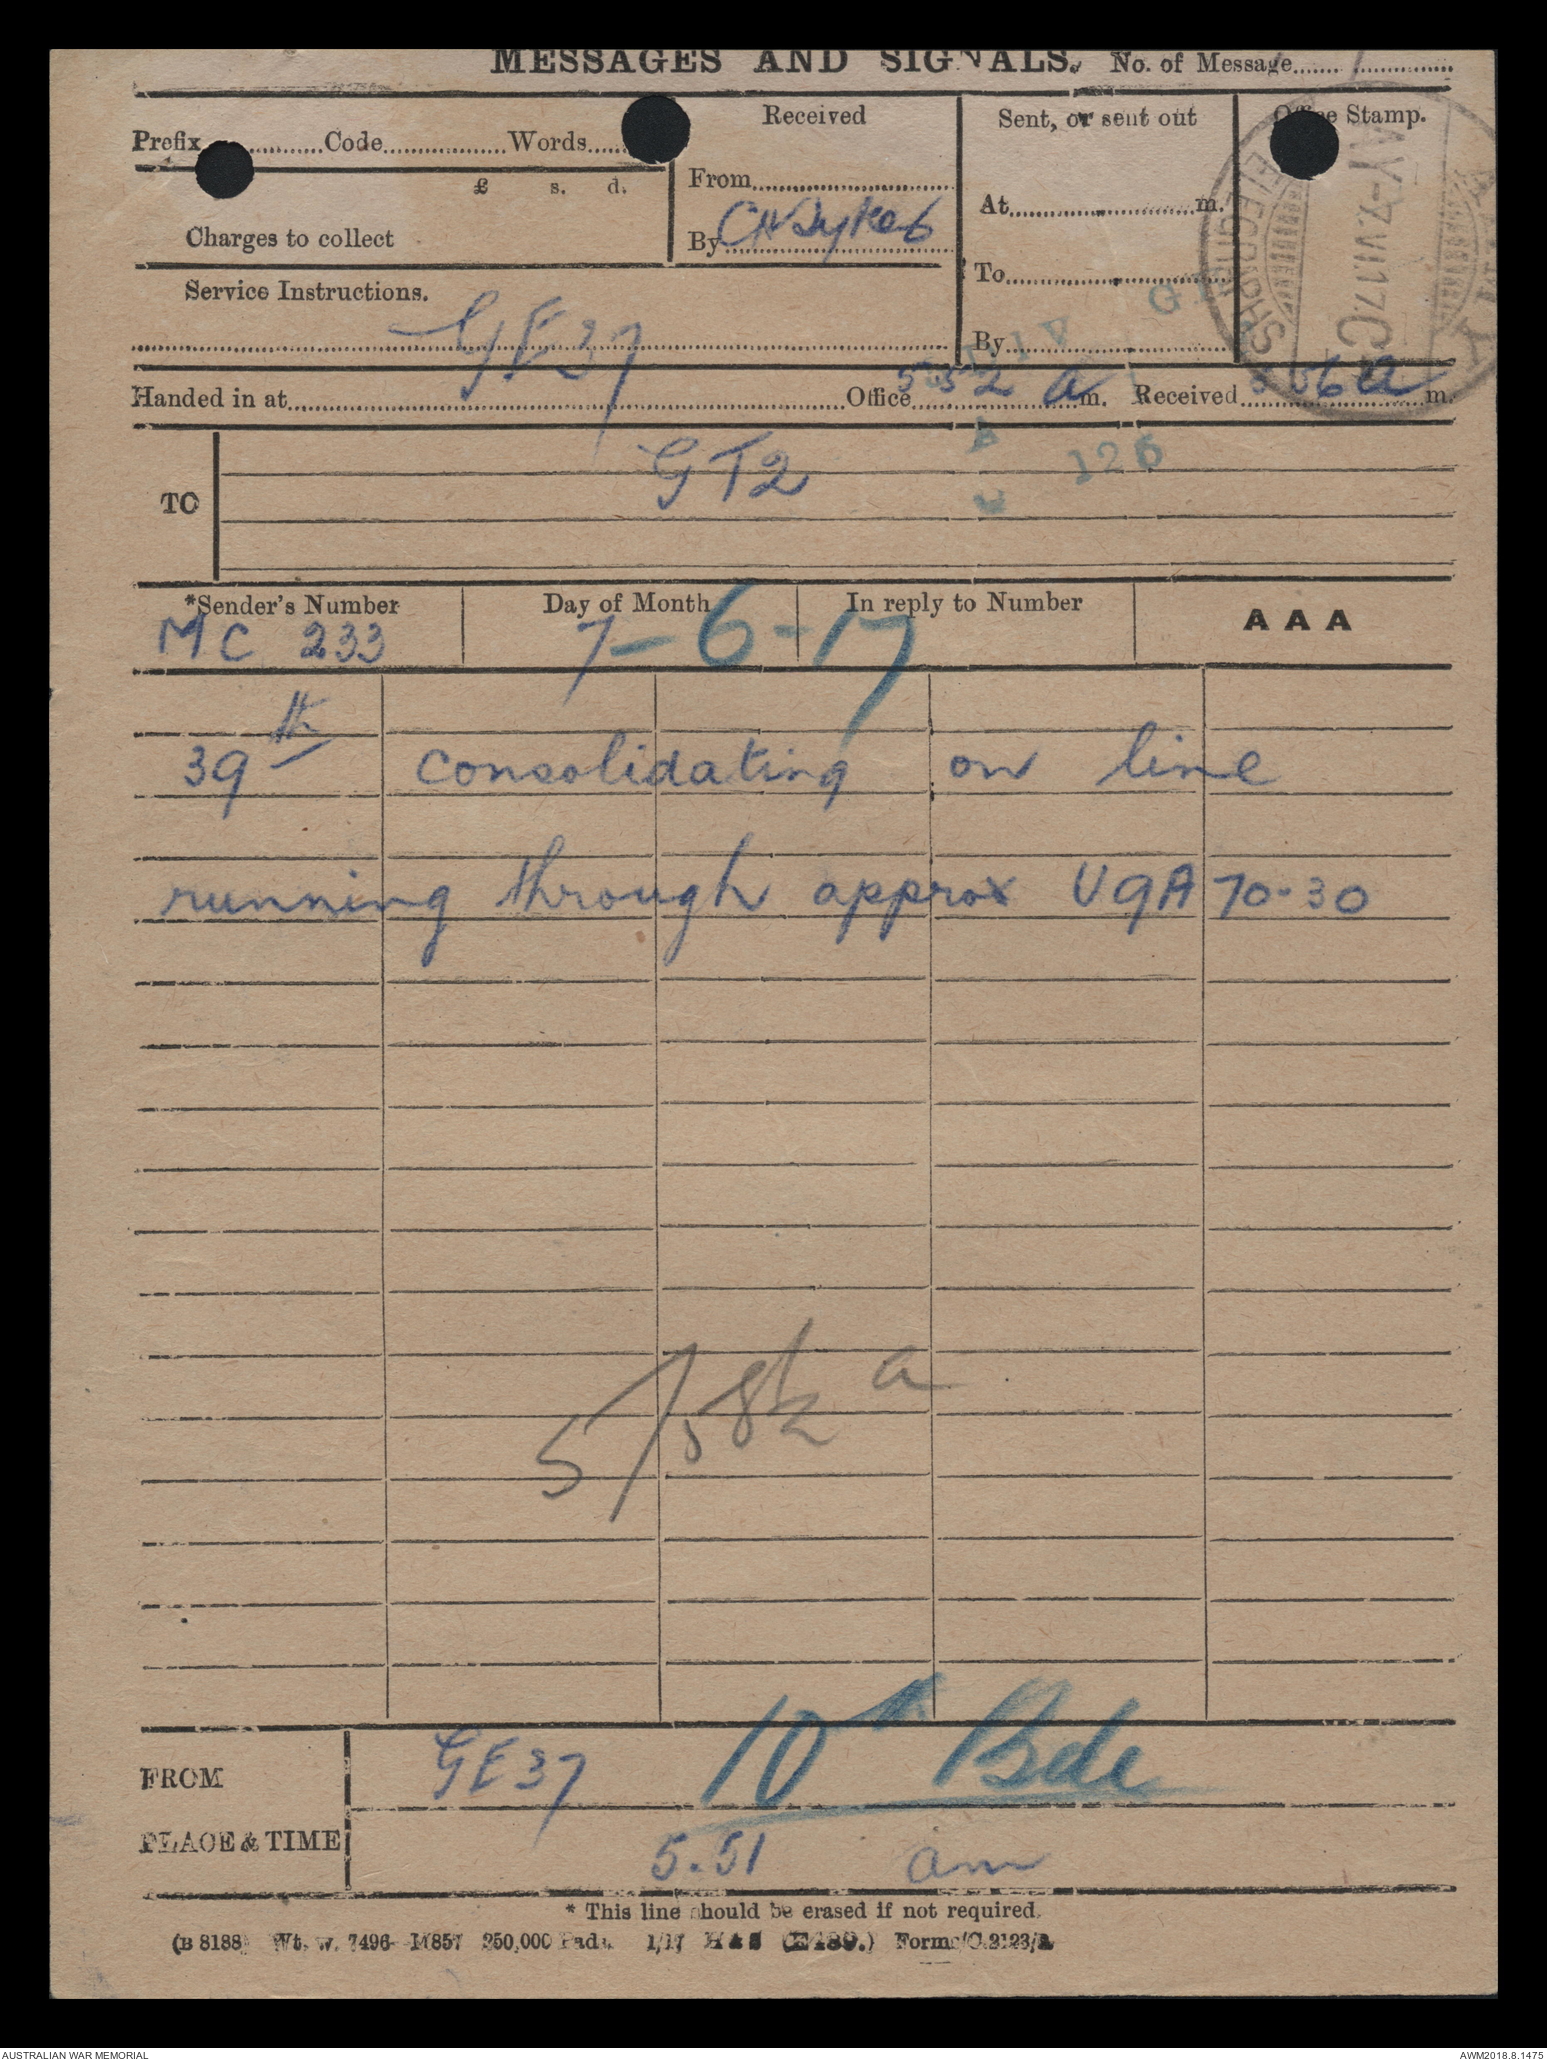 MESSAGES AND SIGNALS. No. of Message
Prefix Code Words
£ s. d.
Charges to collect
Received
From
By CW Sykes
Sent, or sent out
At m.
To
By
Office Stamp.
Service Instructions.
GE37
Handed in at Office 5.52 a m. Received 5 56 a m.
TO GT2
126
*Sender's Number Day of Month In reply to Number AAA
MC 233 7-6-17
39th consolidating on line
running through approx U9A 70-30
5/58½ a
FROM GE37 10th Bde
PLACE & TIME 5.51 am
* This line should be erased if not required.
(B 8188) Wt. w. 7496—M857 250,000 Pads. 1/17 H & S (E 489.) Forms/C.2123/3.
AUSTRALIAN WAR MEMORIAL AWM2018.8.1475